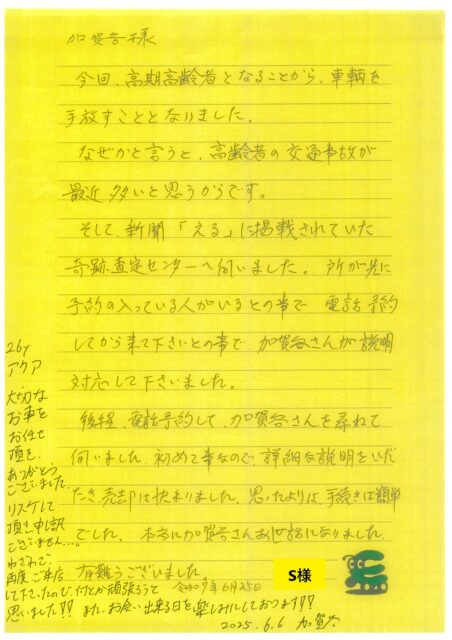 加賀谷様
今回、高期高齢者となることから、車輌を
手放すこととなりました。
なぜかと言うと、高齢者の交通事故が
最近多いと思うからです。
そして、新聞「える」に掲載されていた
奇跡査定センターへ伺いました。所が先に
予約の入っている人がいるとの事で 電話予約
してから来て下さいとの事で 加賀谷さんが説明
対応して下さいました。
後程、電話予約して、加賀谷さんを尋ねて
伺いました、初めて事なので、詳細な説明をいた
だき、売却は決まりました、思ったよりは、手続きは簡単
でした。本当に加賀谷さんお世話になりました
有難うございました。
令和7年6月25日
S様
26y
アクア
大切な
お車を
お任せ
頂き、
ありがとう
ございました
リスケして
頂き申訳
ございません…。
わざわざ、
再度ご来店
して下さったので、何とか頑張ろうと
思いました!! また、お会い出来る日を楽しみにしております!!
2025.6.6 加賀谷